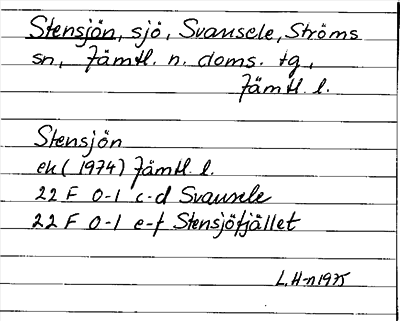 Stensjön, sjö, Svansele, Ströms
sn, Jämtl. n. doms. tg,
Jämtl l.
Stensjön
ek (1974) Jämtl. l.
22 F 0-1 c-d Svansele
22 F 0-1 e-f Stensjöfjället
L.H-n 1975